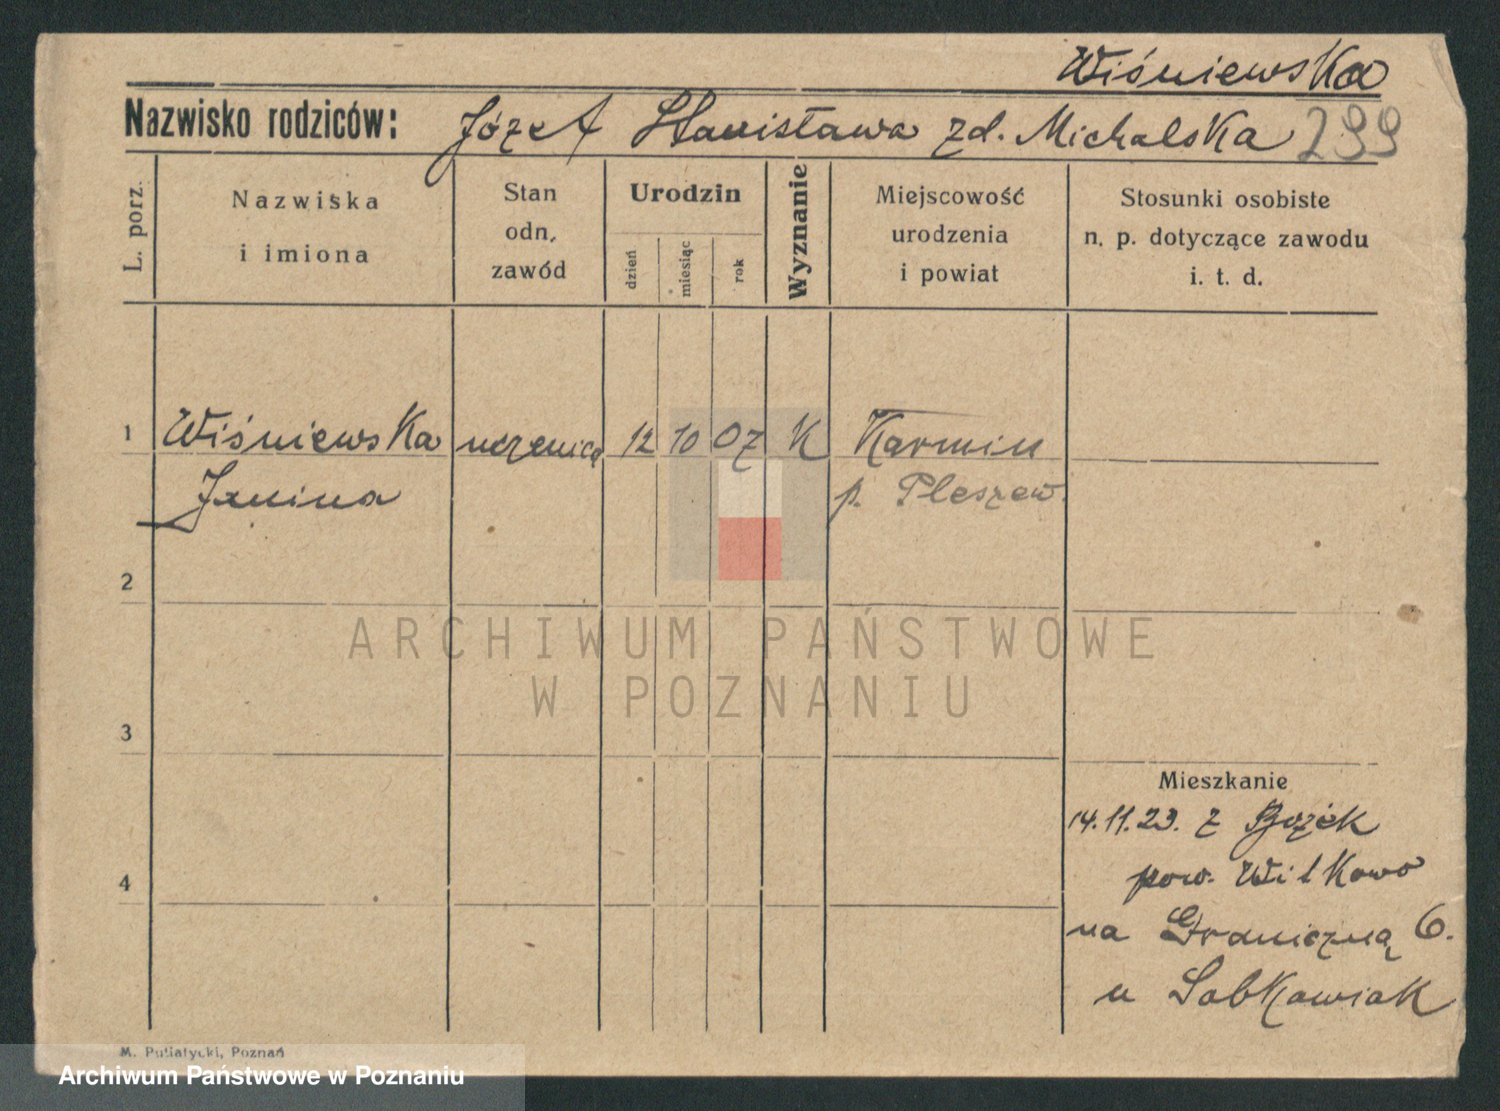 Wiśniewska
Nazwisko rodziców: Józef Stanisława zd. Michalska 299
L. porz.
Nazwiska
i imiona
Stan
odn,
zawód
Urodzin
dzień
miesiąc
rok
Wyznanie
Miejscowość
urodzenia
i powiat
Stosunki osobiste
n. p. dotyczące zawodu
i. t. d.
1 Wiśniewska uczenica 12 10 07 K Karmin
Janina p. Pleszew.
2
ARCHIWUM PAŃSTWOWE
W POZNANIU
3
Mieszkanie
14.11.23. z Bożek
4 pow. Witkowo
na Graniczną 6.
u Sobkowiak
M. Putiatycki, Poznań
Archiwum Państwowe w Poznaniu